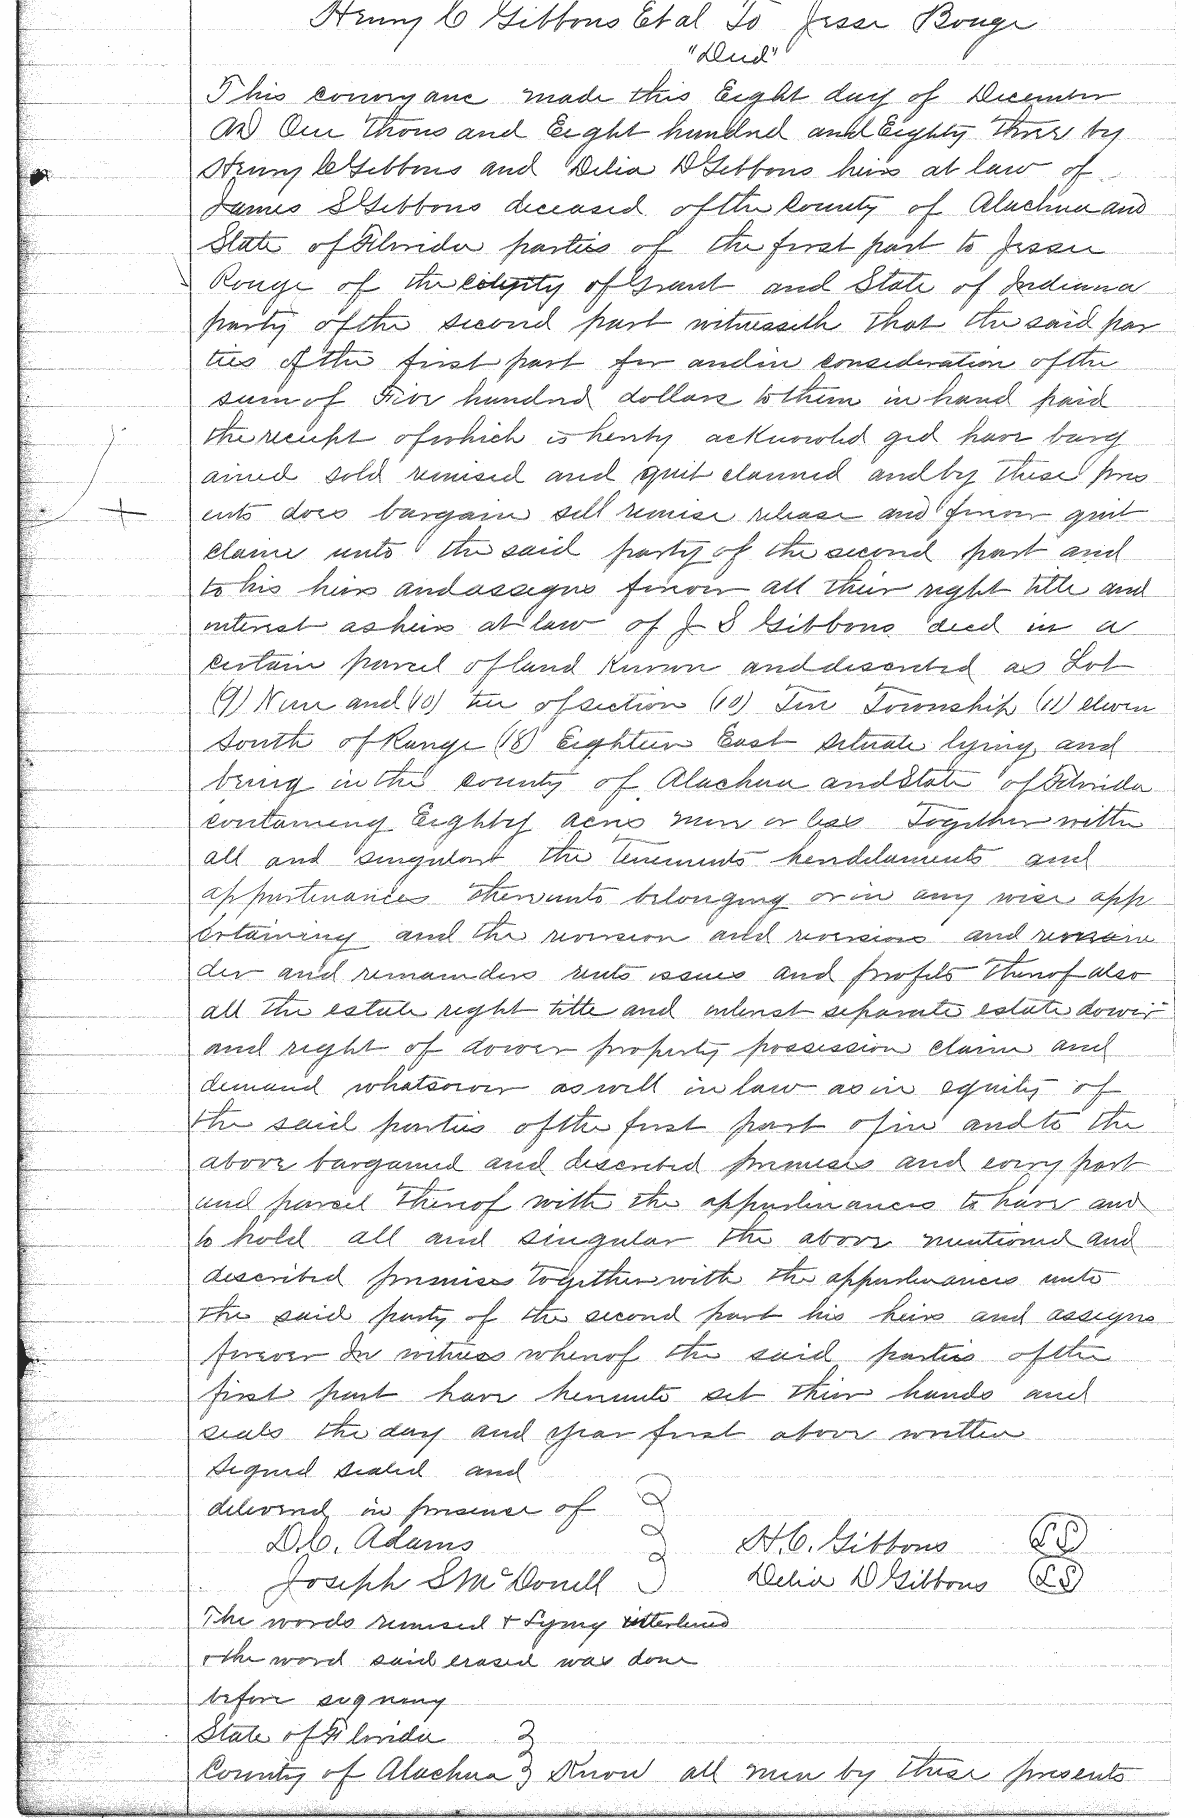 Henry C Gibbons Et al To Jesse Bouge
"Deed"
This conveyance made this Eight day of December
AD One Thousand Eight hundred and Eighty Three by
Henry C Gibbons and Delia D Gibbons heirs at law of
James S Gibbons deceased of the County of Alachua and
State of Florida parties of the first part to Jesse
Bouge of the county of Grant and State of Indiana
party of the second part witnesseth that the said par
ties of the first part for and in consideration of the
sum of Five hundred dollars to them in hand paid
the receipt of which is hereby acknowled ged have barg
ained sold remised and quit claimed and by these pres
ents does bargain sell remise release and forever quit
claim unto the said party of the second part and
to his heirs and assigns forever all their right title and
interest as heirs at law of J S Gibbons deed in a
certain parcel of land known and described as Lot
(9) Nine and (10) ten of section (10) Ten Township (11) eleven
South of Range (18) Eighteen East situate lying and
being in the county of Alachua and State of Florida
containing Eighty acres more or less Together with
all and singular the Tenements hereditaments and
appurtenances thereunto belonging or in any wise app
ertaining and the reversion and reversions and remain
der and remainders rents issues and profits thereof also
all the estate right title and interest separate estate dower
and right of dower property possession claim and
demand whatsoever as well in law as in equity of
the said parties of the first part of in and to the
above bargained and described premises and every part
and parcel thereof with the appurtenances to have and
to hold all and singular the above mentioned and
described premises together with the appurtenances unto
the said party of the second part his heirs and assigns
forever In witness whereof the said parties of the
first part have hereunto set their hands and
seals the day and year first above written
Signed sealed and
delivered in presense of
D. C. Adams H. C. Gibbons LS
Joseph S McDonell Delia D Gibbons LS
The words remised & Lying interlined
& the word said erased was done
before signing
State of Florida
County of Alachua Know all men by these presents